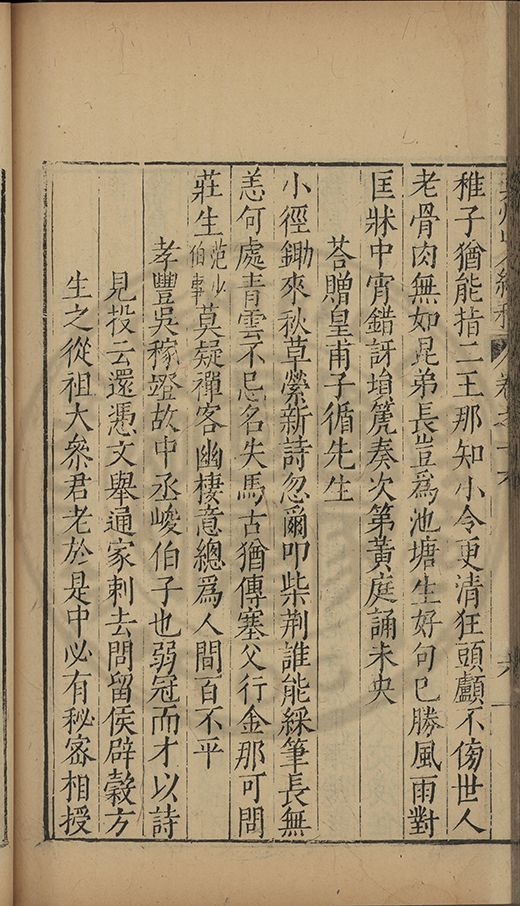 稚子猶能指二王那知小令更清狂頭顱不傷世人
老骨肉無如昆弟長豈爲池塘生好句已勝風雨對
匡牀中宵錯訝塤篪奏次第黃庭誦未央
荅贈皇甫子循先生
小徑鋤來秋草縈新詩忽爾叩柴荆誰能綵筆長無
恙何處青雲不忌名失馬古猶傳塞父行金那可問
莊生范少伯事莫疑禪客幽棲意總爲人間百不平
孝豐吳稼𡺸故中丞峻伯子也弱冠而才以詩
見投云還憑文舉通家刺去問留侯辟穀方
生之從祖大參君老於是中必有秘密相授